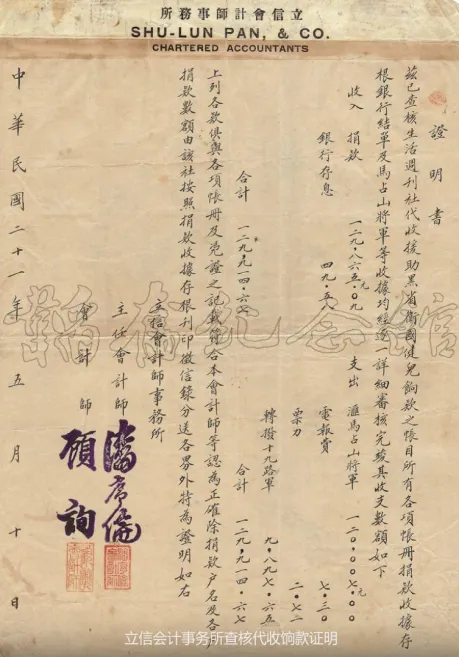 立信會計師事務所
SHU-LUN PAN, & CO.
CHARTERED ACCOUNTANTS
證明書
茲已查核生活週刊社代收援助黑省衛國健兒餉款之帳目所有各項帳冊捐款收據存
根銀行結單及馬占山將軍等收據均經逐一詳細審核完竣其收支數額如下
收入 捐款 一二九・八六五元・〇九 支出 滙馬占山將軍 一二〇・〇〇七元・〇〇
銀行存息 四九・五八 電報費 七・三〇
票力 二・七二
轉撥十九路軍 九・八九七・六五
合計 一二九・九一四・六七 合計 一二九・九一四・六七
上列各款俱與各項帳冊及憑證之記載符合本會計師等認為正確除捐款戶名及各戶
捐款數額由該社按照捐款收據存根刊印徵信錄分送各界外特為證明如右
立信會計師事務所
主任會計師 潘序倫
會計師 顧詢
中華民國二十一年五月十日
韜奮紀念館
立信会计事务所查核代收饷款证明